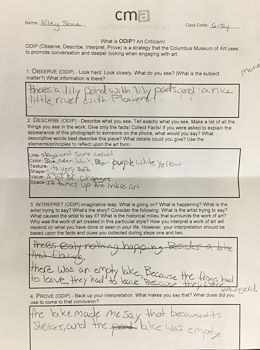 cma
Name: Kiley Stone
Class Code: 6-
What is ODIP? Art Criticism!
ODIP (Observe, Describe, Interpret, Prove) is a strategy that the Columbus Museum of Art uses
to promote conversation and deeper looking when engaging with art.
1. OBSERVE (ODIP) - Look hard. Look closely. What do you see? (What is the subject
matter?) What information is there?
theres a lily pond with lily pads and a nice
little river with flowers!
2. DESCRIBE (ODIP) - Describe what you see. Tell exactly what you see. Make a list of all
the things you see in the work. Give only the facts! Collect Facts! If you were asked to explain the
appearance of this photograph to someone on the phone, what would you say? What
descriptive words best describe this panel? What details could you give? Use the
elements/principles to reflect upon the art form:
Line- and some curved
Color- purple white yellow
Shape-
Texture- its very soft
Value- A lot of changes
Space- It takes up the entire art
3. INTREPRET (ODIP) imaginative leap. What is going on? What is happening? What is the
artist trying to say? What's the story? Consider the following: What is the artist trying to say?
What caused the artist to say it? What is the historical milieu that surrounds the work of art?
Why was the work of art created in this particular style? How you interpret a work of art will
depend on what you have done or seen in your life. However, your interpretation should be
based upon the facts and clues you collected during steps one and two.
theres nothing happing Besides a lake
there was an empty lake, Because the frogs had
to leave, they had to leave Because they were
endangered
4. PROVE (ODIP) - Back up your interpretation. What makes you say that? What clues did you
use to come to that conclusion?
the lake made me say that because its
lake was empty